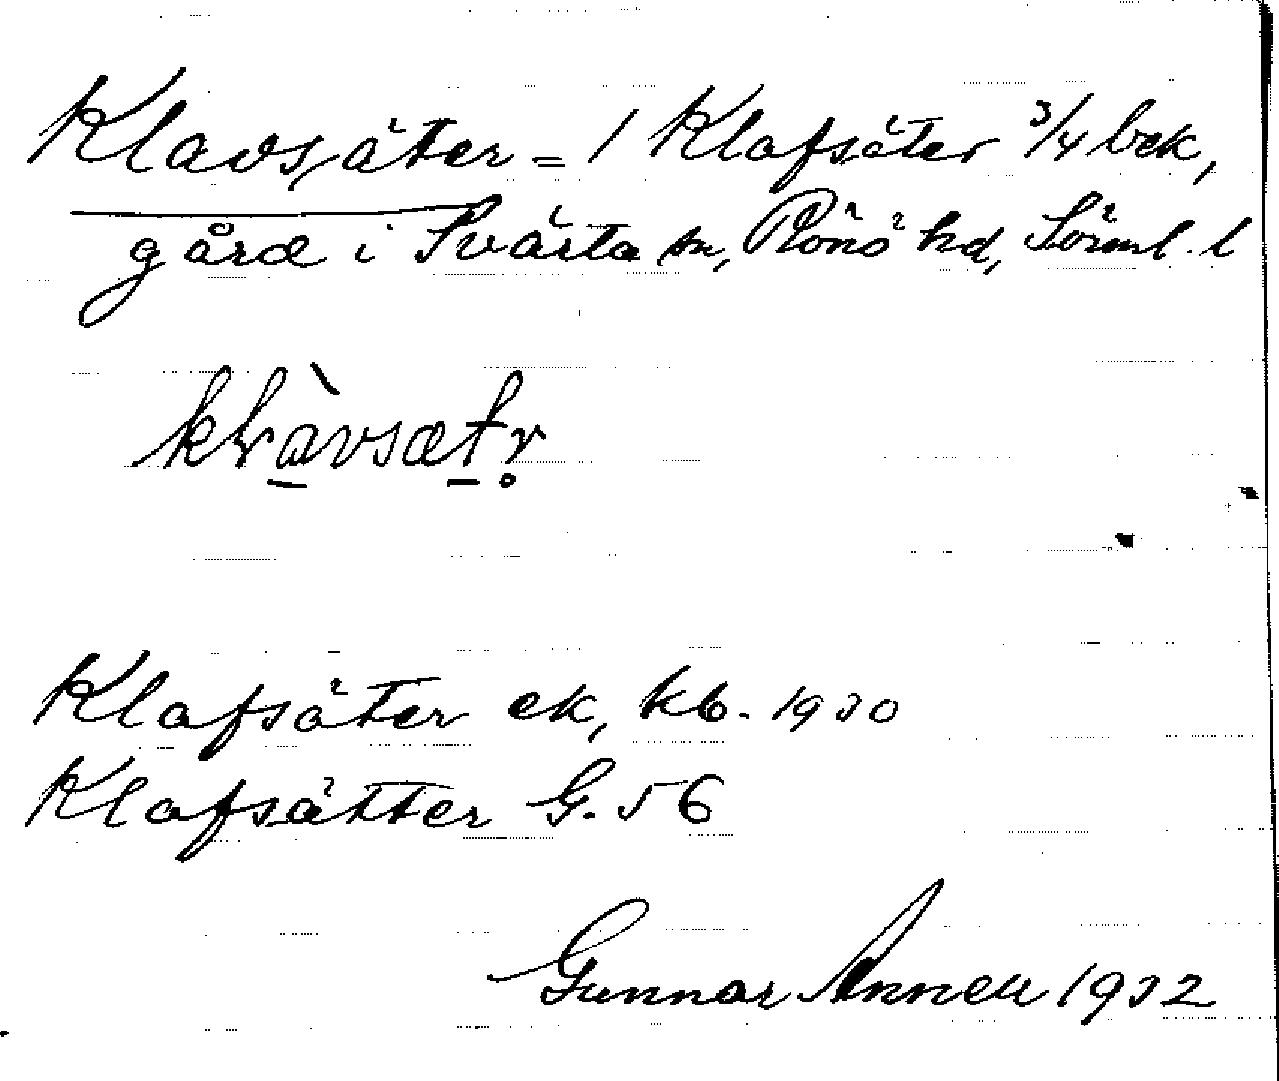 Klavsäter = 1 Klafsäter 3/4 bek,
gård i Svärta sn, Rönö hd, Sörml. l
klàvsætr̥
Klafsäter ek, kb. 1930
Klafsätter G. 56
Gunnar Annell 1932